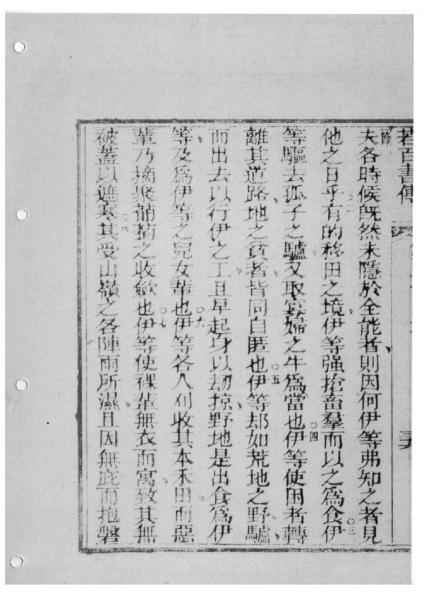 若百書傳
夫各時候既然未隱於全能者則因何伊等弗知之者見
他之日乎有的移田之境伊等强搶畜羣而以之爲食伊
等驅去孤子之驢又取寡婦之牛爲當也伊等使困者轉
離其道路地之貧者皆同自匿也伊等却如荒地之野驢
而出去以行伊之工且早起身以刼掠野地是出食爲伊
等及爲伊等之兒女輩也伊等各人刈收其本禾田而惡
輩乃摘聚葡萄之收斂也伊等使裸輩無衣而寓致其無
被蓋以遮冷其受山嶺之各陣雨所濕且因無庇而抱磐